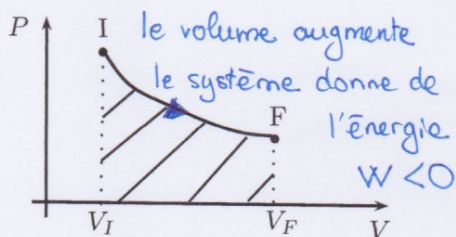 P
I
le volume augmente
le système donne de
l'énergie
F
W < 0
V_I
V_F
V